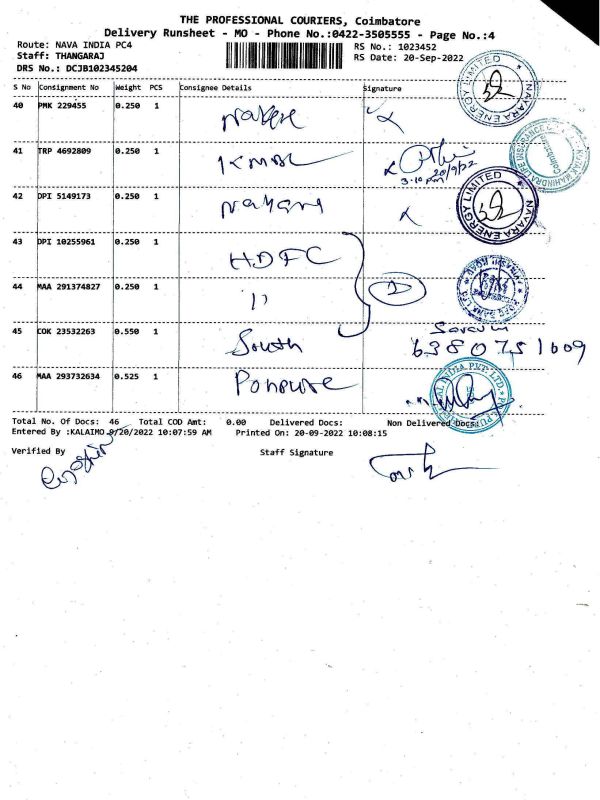 THE PROFESSIONAL COURIERS, Coimbatore
Delivery Runsheet - MO - Phone No.:0422-3505555 - Page No.:4
Route: NAVA INDIA PC4 RS No.: 1023452
Staff: THANGARAJ RS Date: 20-Sep-2022
DRS No.: DCJB102345204
S No Consignment No Weight PCS Consignee Details Signature
40 PMK 229455 0.250 1
NAYARA ENERGY LIMITED
41 TRP 4692809 0.250 1
KMBL
3.10 PM 20/9/22
42 DPI 5149173 0.250 1
NAYARA ENERGY LIMITED
43 DPI 10255961 0.250 1
HDFC
44 MAA 291374827 0.250 1
11 2
45 COK 23532263 0.550 1
South 6380751609
46 MAA 293732634 0.525 1
Ponpure
Total No. Of Docs: 46 Total COD Amt: 0.00 Delivered Docs: Non Delivered Docs:
Entered By :KALAIMO 9/20/2022 10:07:59 AM Printed On: 20-09-2022 10:08:15
Verified By Staff Signature